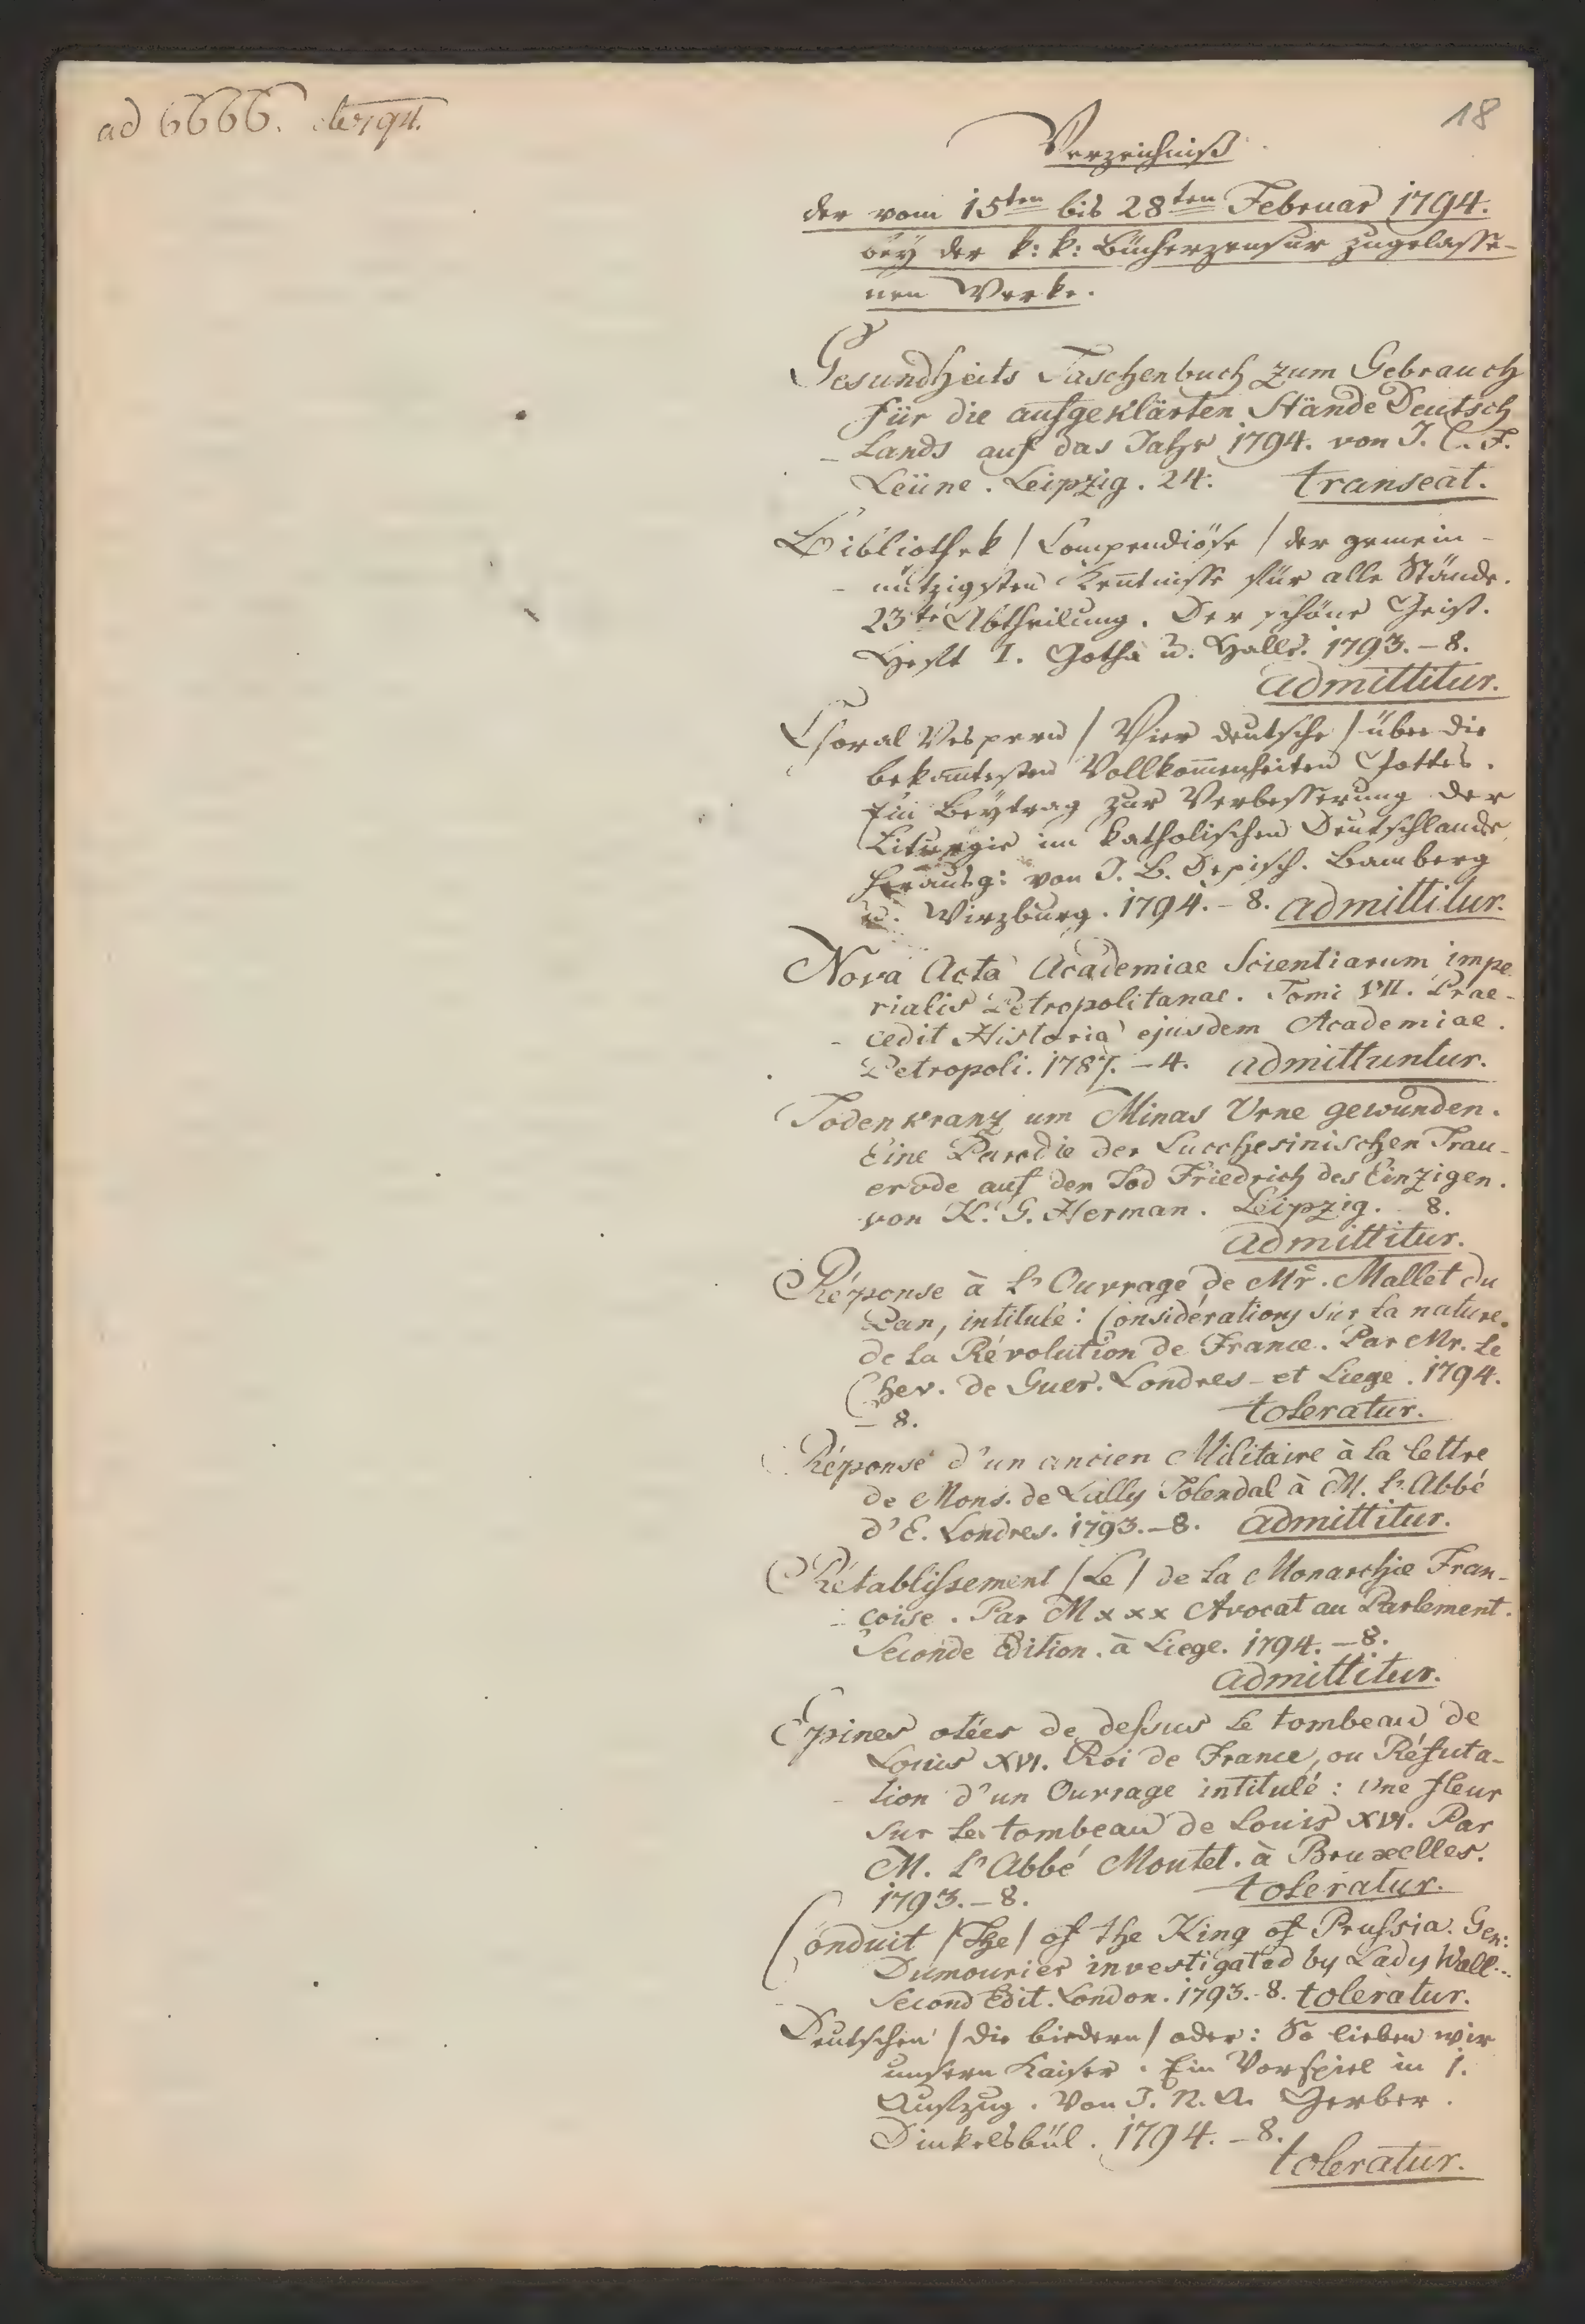 ad 6666.
18
Verzeichniß
der vom 15ten bis 28ten Februar 1794.
bey der k: k: Bücherzensur zugelasse-
nen Werke.
Gesundheits Taschenbuch zum Gebrauch
für die aufgeklärten Stände Deutsch
- Lands auf das Jahr 1794. von J. C. F.
Leüne. Leipzig. 24. transeat.
Bibliothek / Compendiöse / der gemein-
- nützigsten Kentnisse für alle Stände.
23te Abtheilung. Der schöne Geist.
Heft I. Gotha u. Halle. 1793. - 8.
admittitur.
Choral Vespern / Vier deutsche / über die
bekantesten Vollkom̅enheiten Gottes.
Ein Beytrag zur Verbesserung der
Liturgie im katholischen Deutschlande
herausg: von J. B. Depisch. Bamberg
u. Wirzburg. 1794. - 8. admittitur.
Nova Acta Academiae Scientiarum impe
rialis Petropolitanae. Tomi VII. Prae-
- cedit Historia ejusdem Academiae.
Petropoli. 1787. - 4. admittuntur.
Todenkranz um Minas Urne gewunden.
Eine Parodie der Lucchesinischen Trau-
erode auf den Tod Friedrich des Einzigen.
von K. G. Herman. Leipzig. 8.
admittitur.
Réponse à L'Ouvrage de Mr. Mallet du
Pan, intitulé: Considérations sur la nature
de la Révolution de France. Par Mr. Le
Chev. de Guer. Londres - et Liege. 1794.
- 8. toleratur.
Réponse d'un ancien Militaire à la lettre
de Mons. de Lally Tolendal à M. L'Abbé
d'E. Londres. 1793. - 8. admittitur.
Rétablissement / Le / de la Monarchie Fran-
- coise. Par M x x x Avocat au Parlement.
Seconde Edition. à Liege. 1794. - 8.
admittitur.
Epines otées de dessus le tombeau de
Louis XVI. Roi de France, ou Réfuta-
- tion d'un Ouvrage intitulé: Une fleur
sur le tombeau de Louis XVI. Par
M. L'Abbé Montet. à Bruxelles.
1793. - 8. toleratur.
Conduit / The / of the King of Prussia. Gen:
Dumourier investigated by Lady Wall...
Second Edit. London. 1793. - 8. toleratur.
Deutschen / die biedern / oder: So lieben wir
unsern Kaiser. Ein Vorspiel in 1.
Aufzug. Von J. N. A. Gerber.
Dinkelsbül. 1794. - 8.
toleratur.